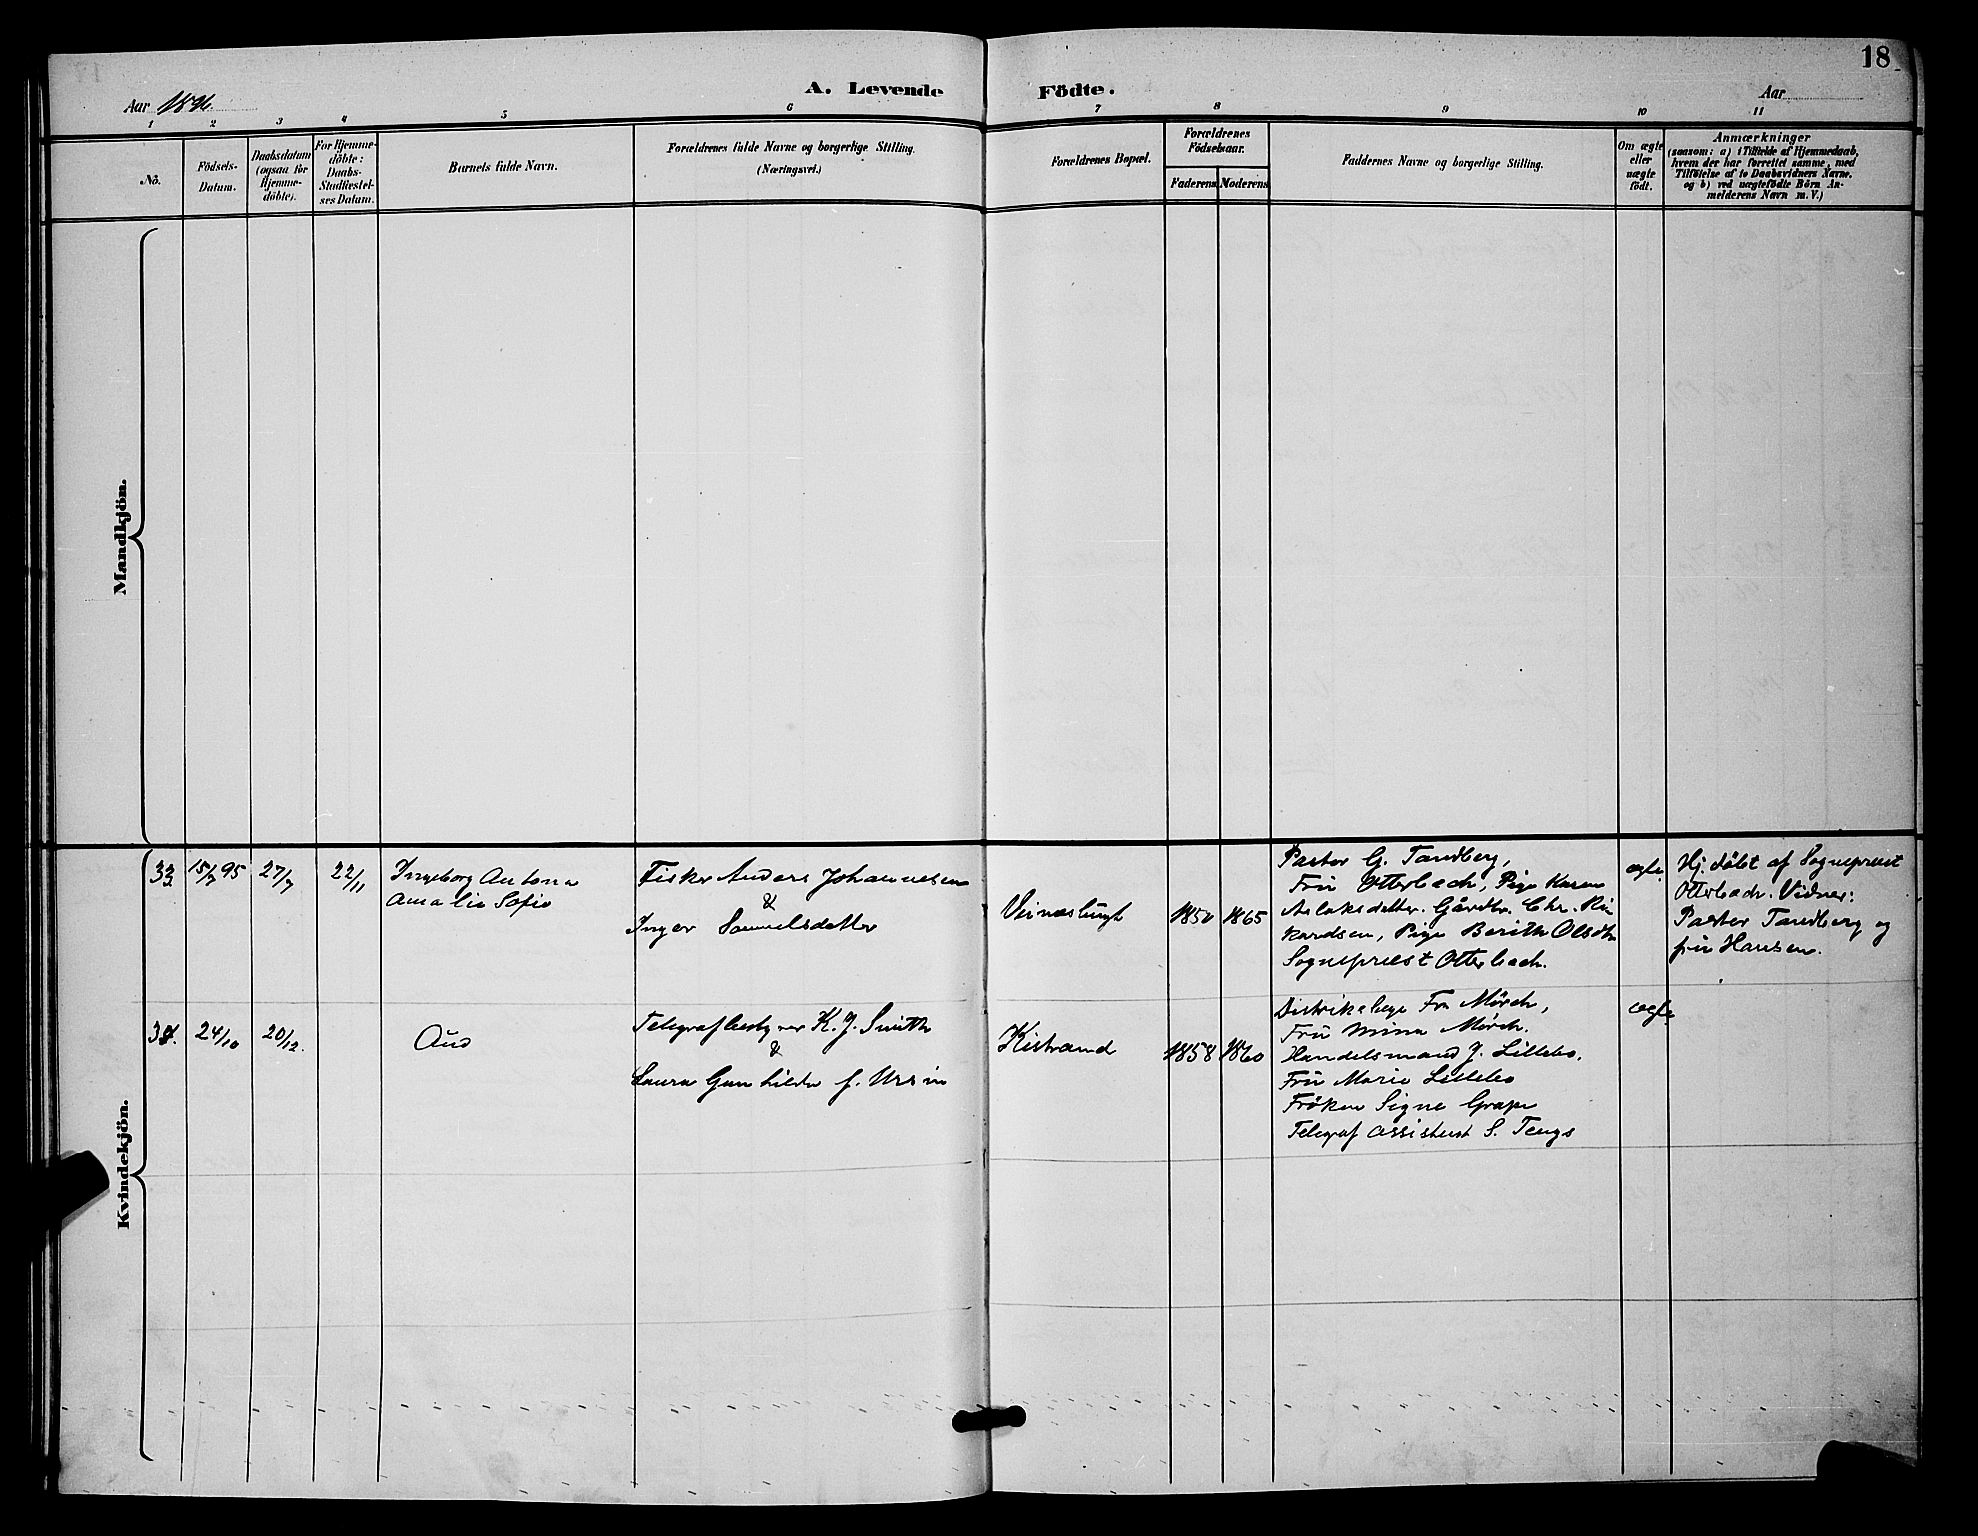 18
A. Levende Födte.
Aar 1896.
Aar
1 2 3 4 5 6 7 8 9 10 11
No.
Födsels-
Datum.
Daabsdatum
(ogsaa for
Hjemme-
döbte).
For Hjemme-
döbte:
Daabs-
Stadfæstel-
ses Datum.
Barnets fulde Navn.
Forældrenes fulde Navne og borgerlige Stilling.
(Næringsvei.)
Forældrenes Bopæl.
Forældrenes
Födselsaar.
Faderens
Moderens
Faddernes Navne og borgerlige Stilling.
Om ægte
eller
uægte
født.
Anmærkninger
(saasom: a) i Tilfælde af Hjemmedaab,
hvem der har forrettet samme, med
Tilföielse af to Daabsvidners Navne.
og b) ved uægtefödte Börn An-
melderens Navn m. V.)
Mandkjön.
Kvindekjön.
15/7 95
27/7
22/11
Ingeborg Antona
Amalie Sofie
Fisker Anders Johannesen
&
Inger Samuelsdatter
1850
1865
Pastor G. Tandberg,
Frü Otterbech, Pige Karen
Aslaksdatter. Gårdbr. Chr. Ri-
kardsen, Pige Berith Olsdtr
Sogneprest Otterbech.
ægte
Hj. döbt af Sogneprest
Otterbech. Vidner:
Pastor Tandberg og
frü Hansen.
24/10
20/12.
Aud
Telegrafbestyrer K. J. Smith
&
Laura Gunhilda f. Ursin
Kistrand
1858
1860
Distriktslæge Fr. Mörch,
Frü Mina Mörch.
Handelsmand J. Lillebo.
Frü Marie Lillebo
Fröken Signe Grape
Telegraf assistent S. Tengs
ægte